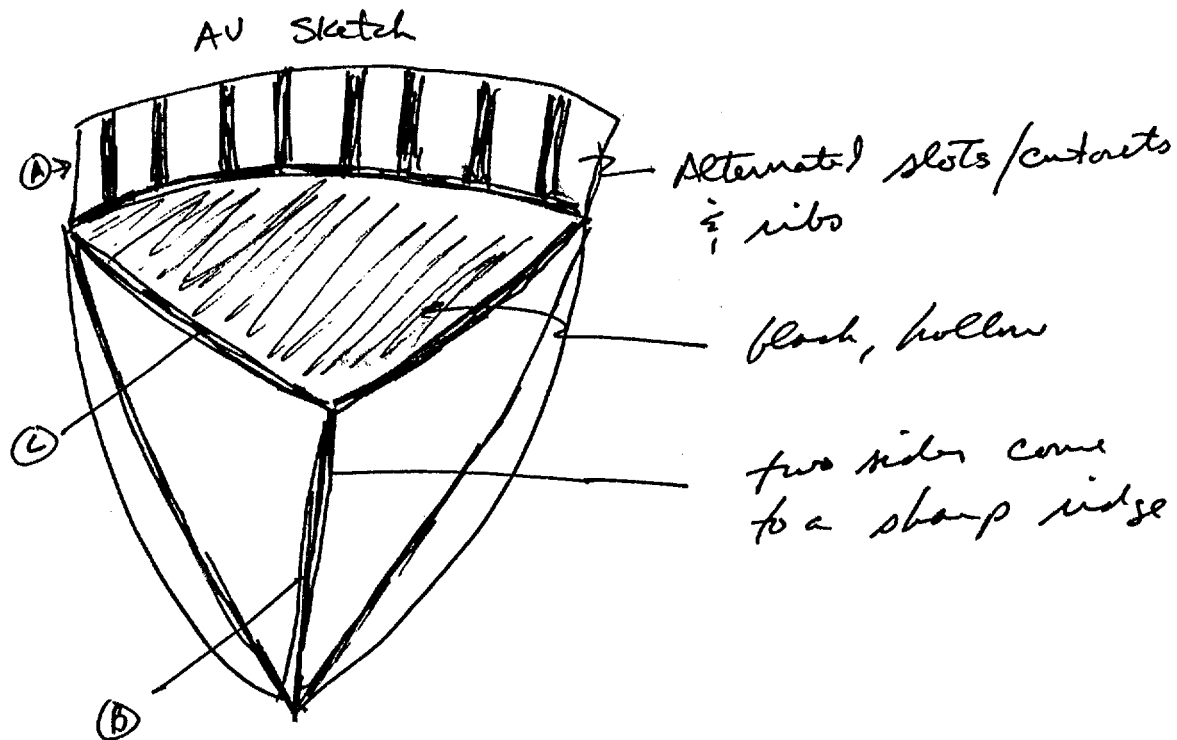 AV Sketch
Ⓐ
Alternated slots/cutouts
& ribs
black, hollow
Ⓒ
two sides come
to a sharp ridge
Ⓑ